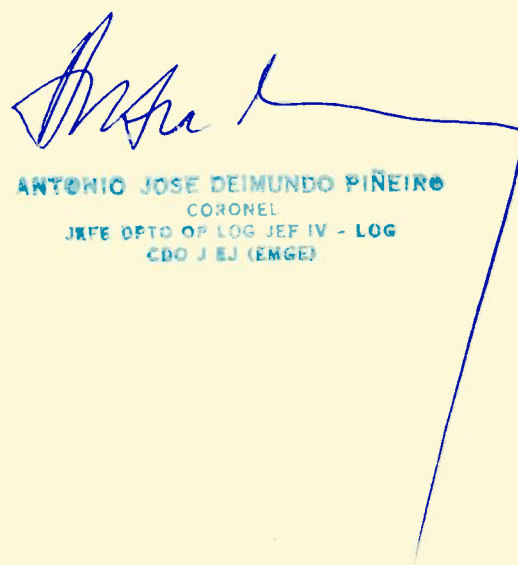 ANTONIO JOSE DEIMUNDO PIÑEIRO
CORONEL
JEFE DPTO OP LOG JEF IV - LOG
CDO J EJ (EMGE)